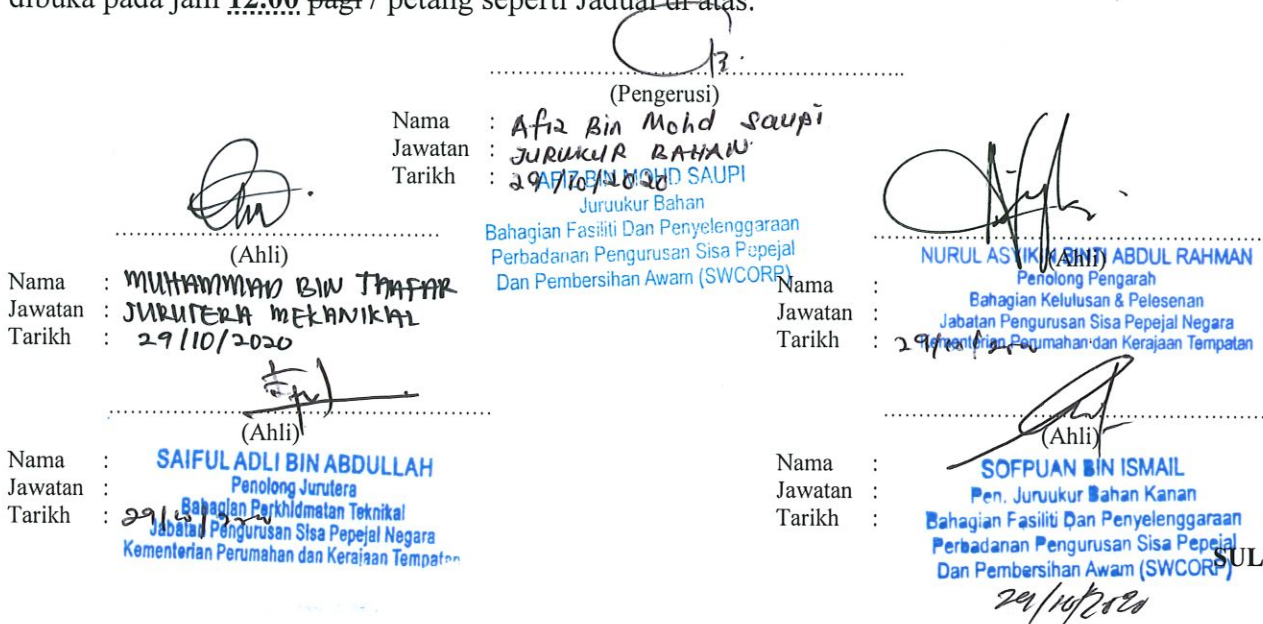 dibuka pada jam 12.00 pagi / petang seperti Jadual di atas.
(Pengerusi)
Nama : Afiz Bin Mohd Saupi
Jawatan : JURUKUR BAHAN
Tarikh : 29/10/2020
AFIZ BIN MOHD SAUPI
Juruukur Bahan
Bahagian Fasiliti Dan Penyelenggaraan
Perbadanan Pengurusan Sisa Pepejal
Dan Pembersihan Awam (SWCORP)
(Ahli)
Nama : MUHAMMAD BIN THAFAR
Jawatan : JURUTERA MEKANIKAL
Tarikh : 29/10/2020
(Ahli)
NURUL ASYIKIN BINTI ABDUL RAHMAN
Penolong Pengarah
Bahagian Kelulusan & Pelesenan
Jabatan Pengurusan Sisa Pepejal Negara
Kementerian Perumahan dan Kerajaan Tempatan
Nama :
Jawatan :
Tarikh : 29/10/2020
(Ahli)
Nama :
Jawatan :
Tarikh : 29/10/2020
SAIFUL ADLI BIN ABDULLAH
Penolong Jurutera
Bahagian Perkhidmatan Teknikal
Jabatan Pengurusan Sisa Pepejal Negara
Kementerian Perumahan dan Kerajaan Tempatan
(Ahli)
Nama :
Jawatan :
Tarikh :
SOFPUAN BIN ISMAIL
Pen. Juruukur Bahan Kanan
Bahagian Fasiliti Dan Penyelenggaraan
Perbadanan Pengurusan Sisa Pepejal
Dan Pembersihan Awam (SWCORP)
SUL
29/10/2020